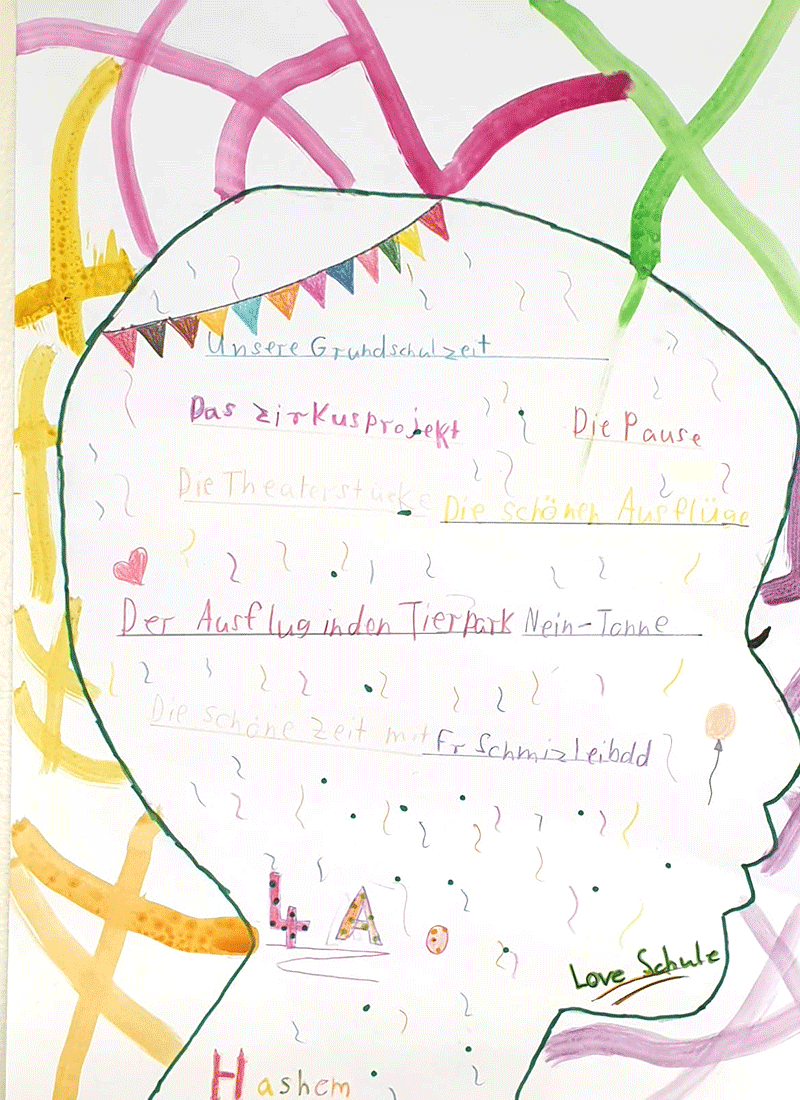 Unsere Grundschulzeit
Das Zirkusprojekt Die Pause
Die Theaterstücke Die schönen Ausflüge
Der Ausflug in den Tierpark Nein-Tonne
Die schöne Zeit mit Fr Schmizleibdd
4A.
Love Schule
Hashem